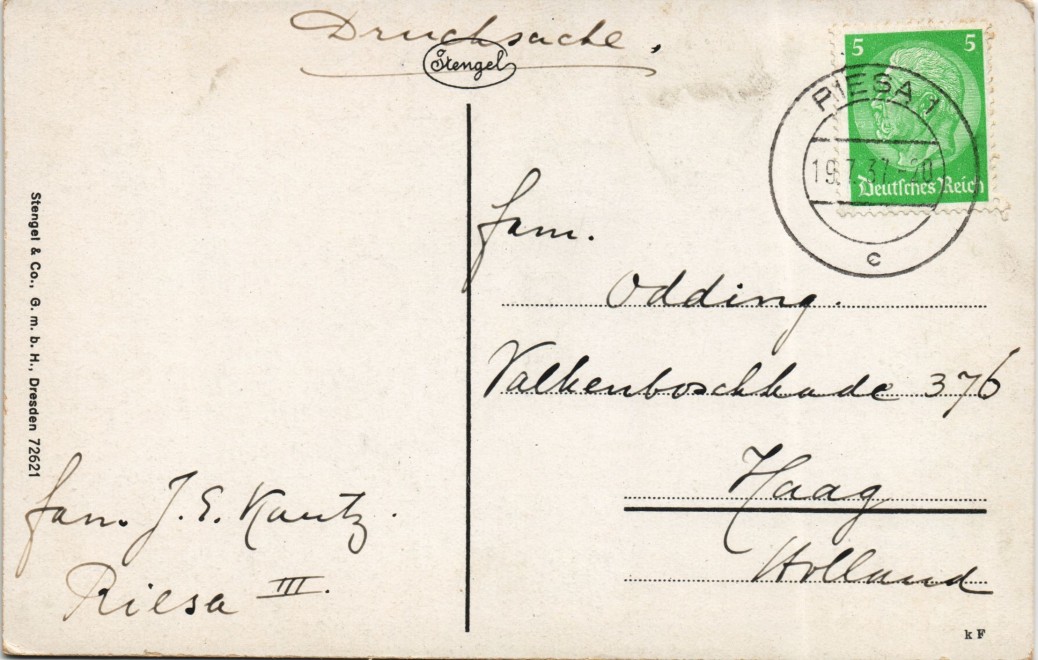 Drucksache.
Stengel
5 5
RIESA 1
19.7.37.-20
Deutsches Reich
c
Stengel & Co., G. m. b. H., Dresden 72621
fam.
Odding.
Valkenboschkade 376
Haag
Holland
fam. J. E. Kautz.
Riesa III.
k F